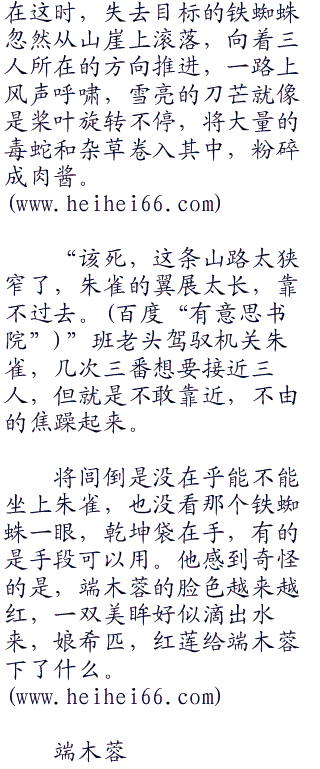 在这时，失去目标的铁蜘蛛
忽然从山崖上滚落，向着三
人所在的方向推进，一路上
风声呼啸，雪亮的刀芒就像
是桨叶旋转不停，将大量的
毒蛇和杂草卷入其中，粉碎
成肉酱。
(www.heihei66.com)
“该死，这条山路太狭
窄了，朱雀的翼展太长，靠
不过去。(百度“有意思书
院”)”班老头驾驭机关朱
雀，几次三番想要接近三
人，但就是不敢靠近，不由
的焦躁起来。
将闾倒是没在乎能不能
坐上朱雀，也没看那个铁蜘
蛛一眼，乾坤袋在手，有的
是手段可以用。他感到奇怪
的是，端木蓉的脸色越来越
红，一双美眸好似滴出水
来，娘希匹，红莲给端木蓉
下了什么。
(www.heihei66.com)
端木蓉